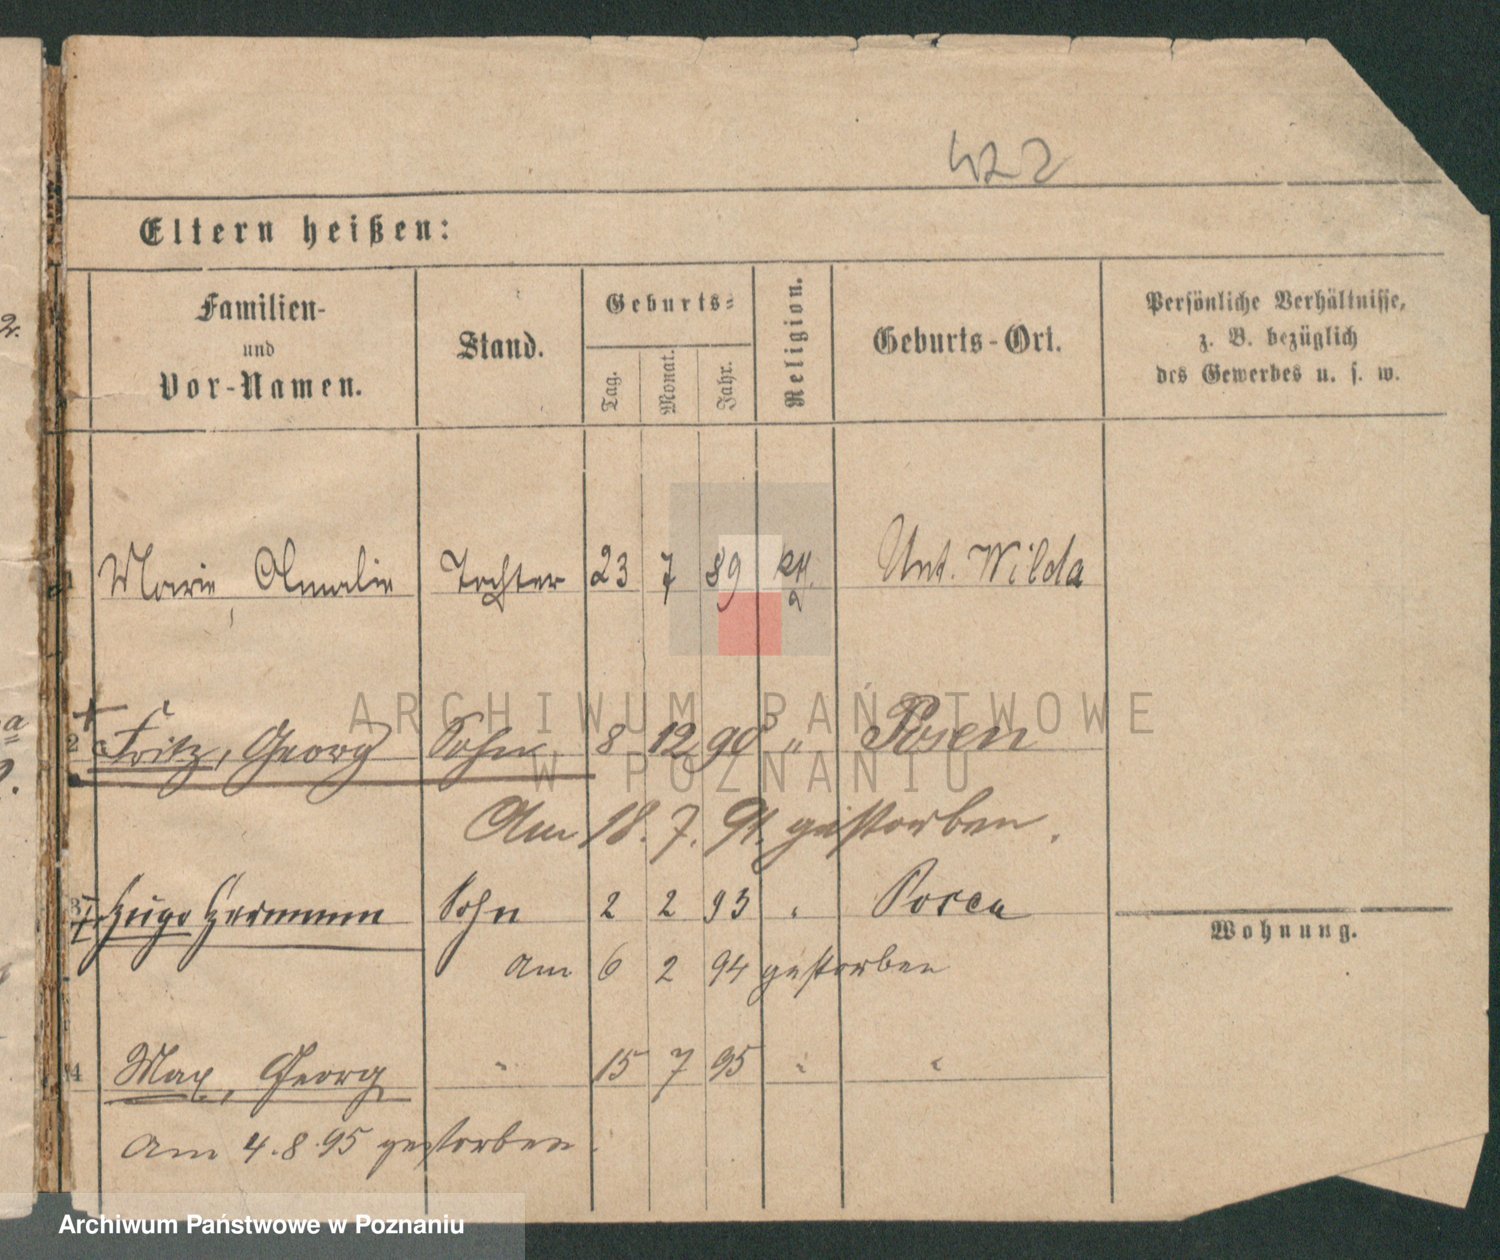 422
Eltern heißen:
Familien-
und
Vor-Namen.
Stand.
Geburts-
Tag.
Monat.
Jahr.
Religion.
Geburts-Ort.
Persönliche Verhältnisse,
z. B. bezüglich
des Gewerbes u. s. w.
1 Marie, Amalie Tochter 23 7 89 kth. Unt. Wilda
2 Fritz, Georg Sohn 8 12 90 " Posen
Am 18. 7. 91. gestorben.
3 Hugo Hermann Sohn 2 2 93 " Posen
am 6 2 94 gestorben
Wohnung.
4 Max, Georg " 15 7 95 " "
am 4. 8. 95 gestorben.
ARCHIWUM PAŃSTWOWE
W POZNANIU
Archiwum Państwowe w Poznaniu